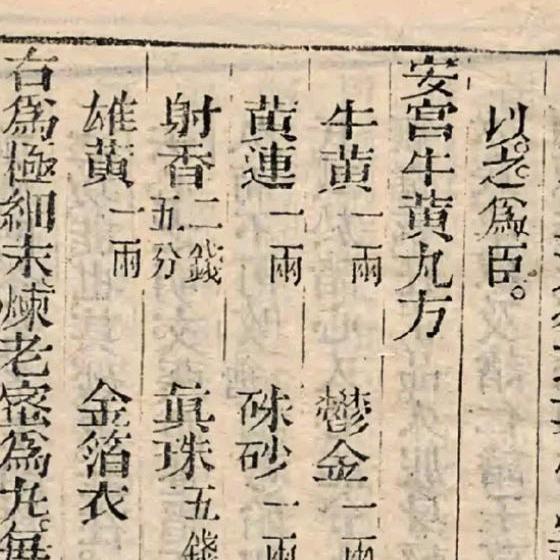 以之爲臣。
安宫牛黄丸方
牛黄一兩 鬱金一兩
黄連一兩 硃砂一兩
射香二錢五分 真珠五錢
雄黄一兩 金箔衣
右爲極細末煉老蜜爲丸每